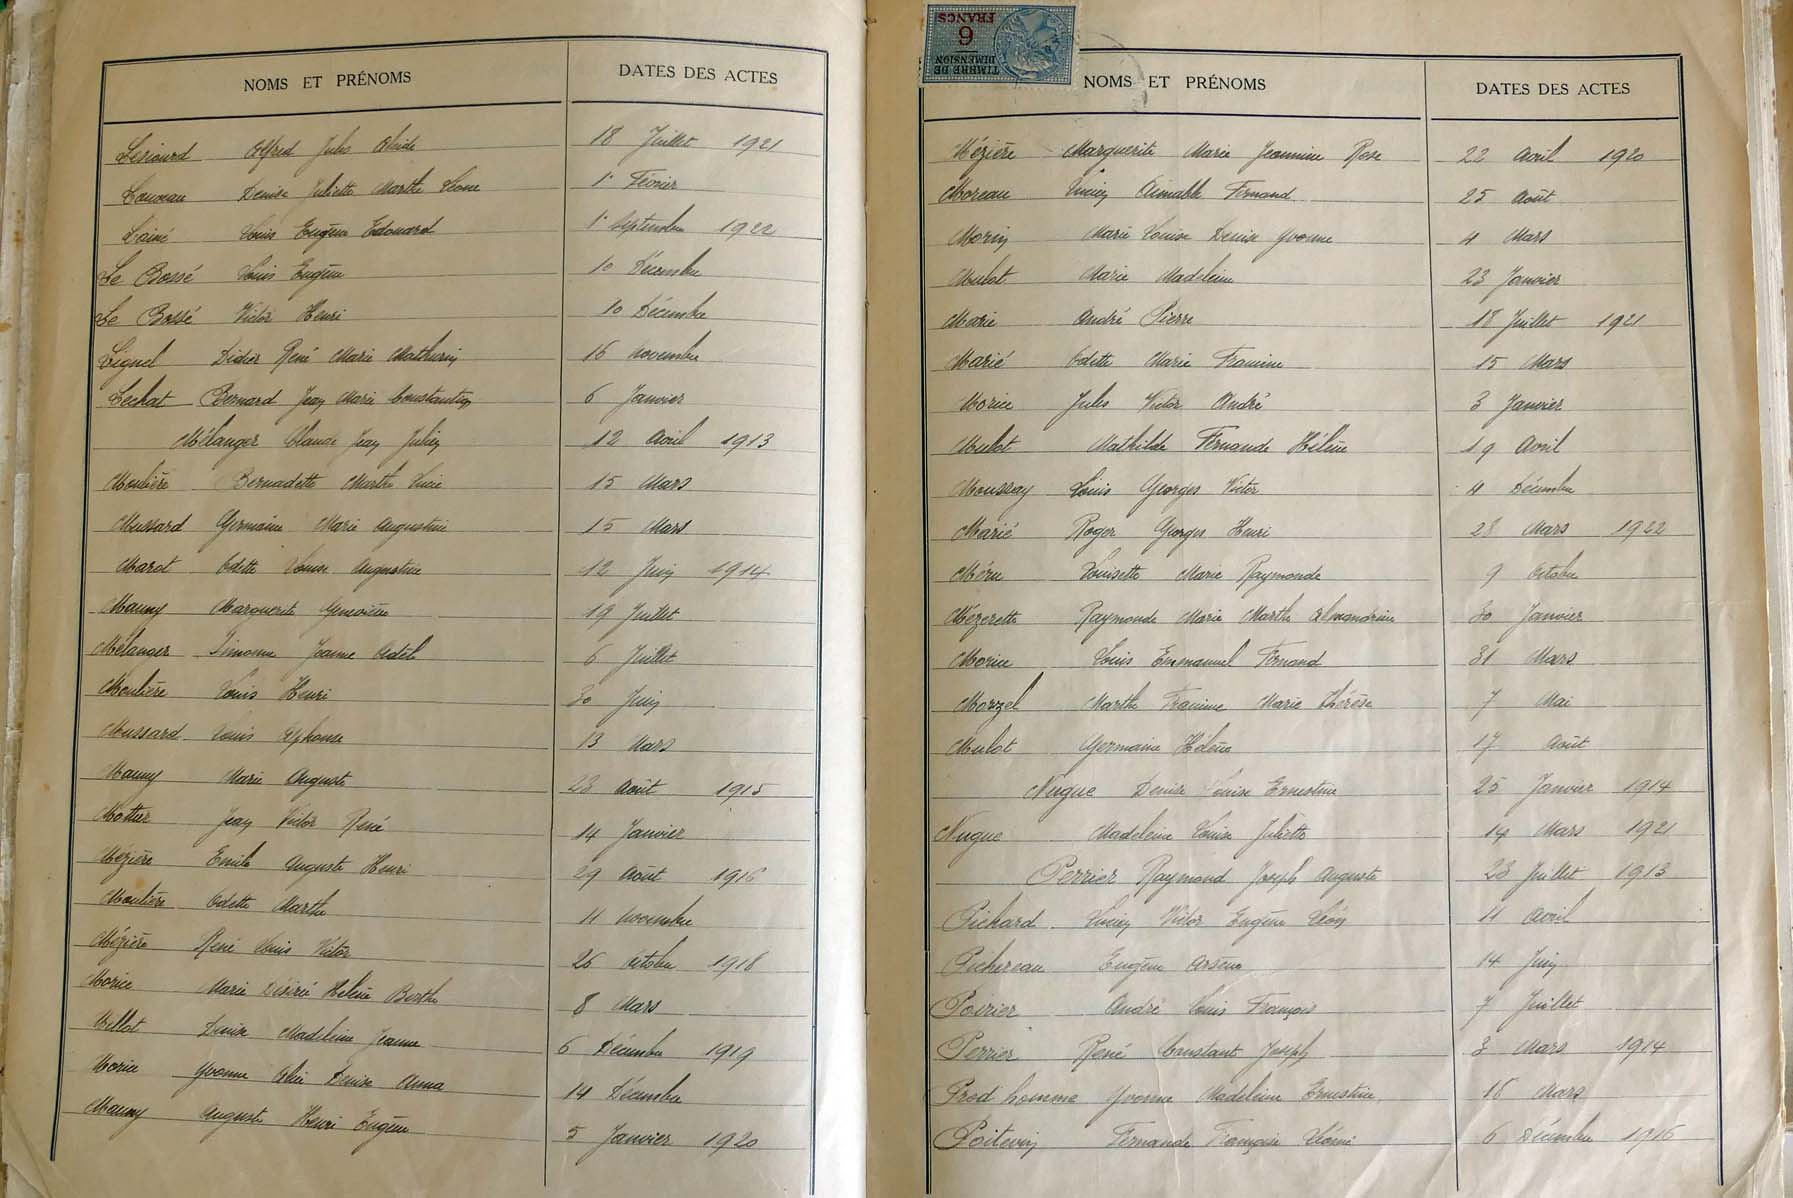 NOMS ET PRÉNOMS DATES DES ACTES
Alfred Jules Alcide 18 Juillet 1921
Louveau Denise Juliette Marthe Léone 1er Février
Lainé Louis Eugène Edouard 1er Septembre 1922
Le Bossé Louis Eugène 10 Décembre
Le Bossé Victor Henri 10 Décembre
Lignel Didier René Marie Mathurin 16 Novembre
Lechat Bernard Jean Marie Constantin 6 Janvier
Mélanger Claude Jean Julien 12 Avril 1913
Moulière Bernadette Marthe Lucie 15 Mars
Mussard Germaine Marie Augustine 15 Mars
Marot Odette Louise Augustine 12 Juin 1914
Mauny Marguerite Geneviève 19 Juillet
Mélanger Simonne Jeanne Adèle 6 Juillet
Moulière Louis Henri 30 Juin
Mussard Louis Alphonse 13 Mars
Mauny Marie Auguste 23 Août 1915
Mottier Jean Victor René 14 Janvier
Mézière Emile Auguste Henri 29 Août 1916
Moulière Odette Marthe 11 Novembre
Mézière René Louis Victor 26 Octobre 1918
Morice Marie Désirée Hélène Berthe 8 Mars
Millot Denise Madeleine Jeanne 6 Décembre 1919
Morice Yvonne Alice Denise Anna 14 Décembre
Mauny Auguste Henri Eugène 5 Janvier 1920
TIMBRE DE DIMENSION
6 FRANCS
NOMS ET PRÉNOMS DATES DES ACTES
Mézière Marguerite Marie Jeannine Rose 22 Avril 1920
Moreau Lucien Aimable Fernand 25 Août
Morin Marie Louise Denise Yvonne 4 Mars
Mulot Marie Madeleine 23 Janvier
Marie André Pierre 18 Juillet 1921
Marié Odette Marie Francine 15 Mars
Morice Jules Victor André 3 Janvier
Mulot Mathilde Fernande Hélène 19 Avril
Moussay Louis Georges Victor 4 Décembre
Marié Roger Georges Henri 28 Mars 1922
Méru Louisette Marie Raymonde 9 Octobre
Mézerette Raymonde Marie Marthe Alexandrine 30 Janvier
Morice Louis Emmanuel Fernand 31 Mars
Morzel Marthe Francine Marie Thérèse 7 Mai
Mulot Germaine Hélène 17 Août
Nugue Denise Louise Ernestine 25 Janvier 1914
Nugue Madeleine Louise Juliette 14 Mars 1921
Perrier Raymond Joseph Auguste 23 Juillet 1913
Pichard Lucien Victor Eugène Léon 11 Avril
Pichereau Eugène Arsène 14 Juin
Poirier André Louis François 7 Juillet
Perrier René Constant Joseph 3 Mars 1914
Prod'homme Yvonne Madeleine Ernestine 18 Mars
Poitevin Fernande Françoise 6 Décembre 1916